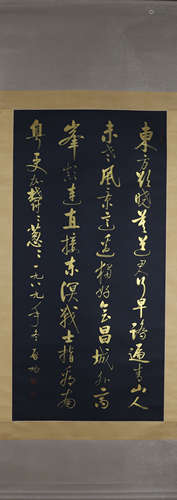 東方欲曉莫道君行早踏遍青山人
未老風景這邊獨好會昌城外高
峰顛連直接東溟戰士指看南
粵更加鬱鬱蔥蔥一九八九年冬啟功